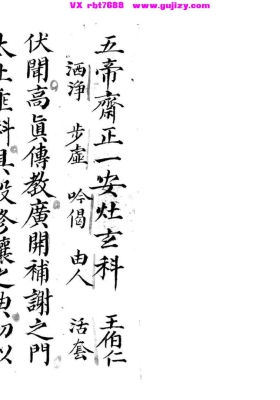 VX rbt7688 www.gujizy.com
五帝齋正一安灶玄科 王伯仁
洒淨 步虛 吟偈 由人 活套
伏聞高真傳教廣開補謝之門
太上垂科具設修禳之典切以